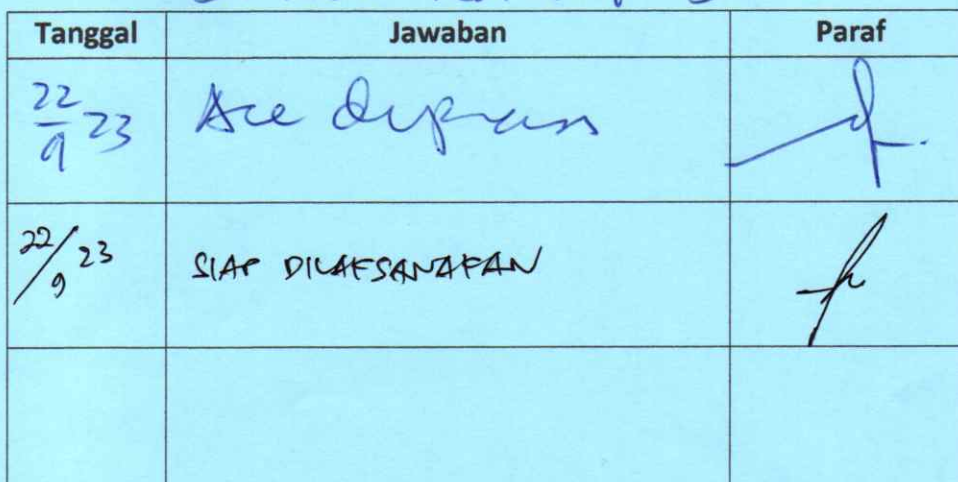 Tanggal Jawaban Paraf
22/9 23 Acc diproses
22/9 23 SIAP DILAKSANAKAN